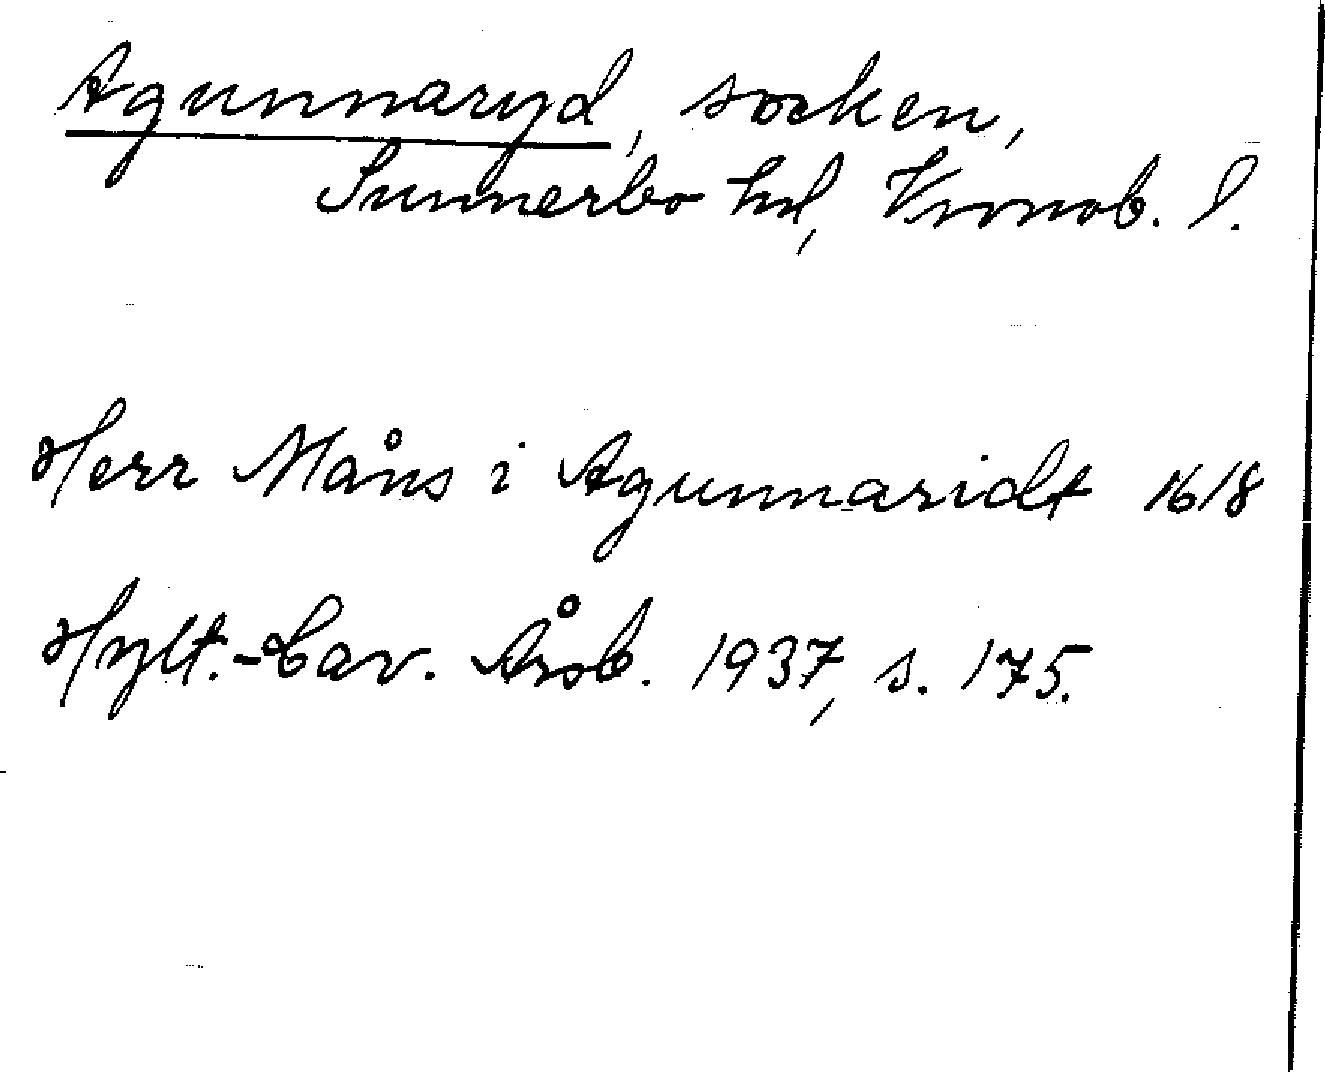 Agunnaryd, socken,
Sunnerbo hd, Kronob. l.
Herr Måns i Agunnaridt 1618
Hylt.-Cav. Årsb. 1937, s. 175.